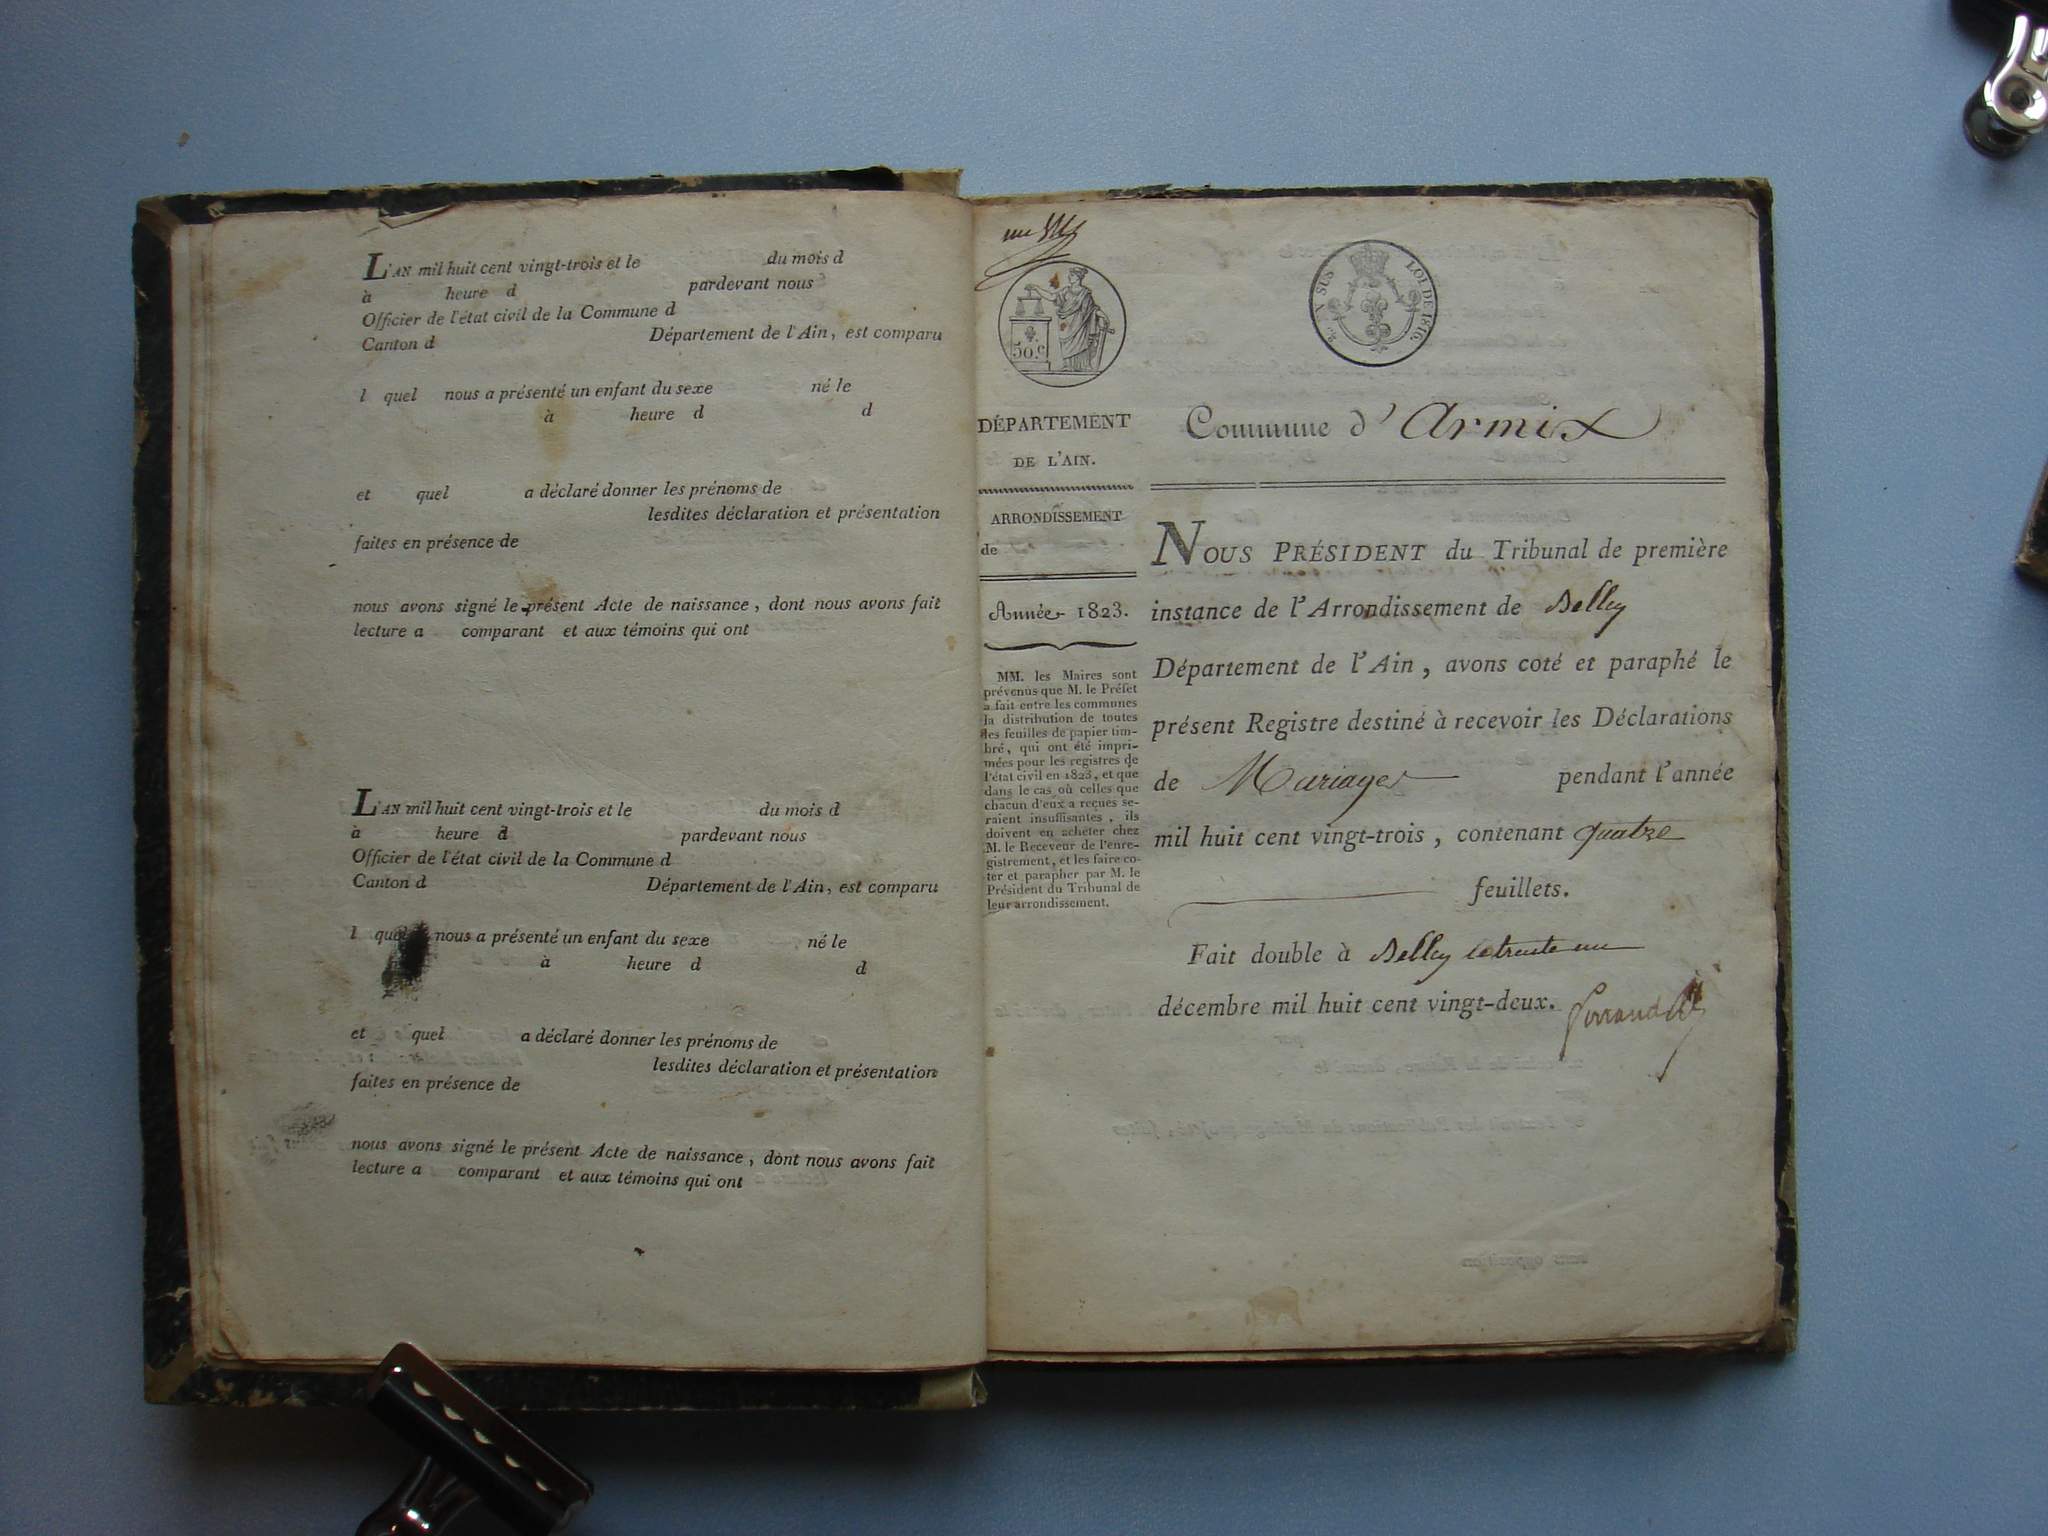 L'AN mil huit cent vingt-trois et le du mois d
à heure d pardevant nous
Officier de l'état civil de la Commune d
Canton d Département de l'Ain, est comparu
l quel nous a présenté un enfant du sexe né le
à heure d d
et quel a déclaré donner les prénoms de
lesdites déclaration et présentation
faites en présence de
nous avons signé le présent Acte de naissance, dont nous avons fait
lecture a comparant et aux témoins qui ont
L'AN mil huit cent vingt-trois et le du mois d
à heure d pardevant nous
Officier de l'état civil de la Commune d
Canton d Département de l'Ain, est comparu
l quel nous a présenté un enfant du sexe né le
à heure d d
et quel a déclaré donner les prénoms de
lesdites déclaration et présentation
faites en présence de
nous avons signé le présent Acte de naissance, dont nous avons fait
lecture a comparant et aux témoins qui ont
50.c
EN SUS LOI DE 1816.
DÉPARTEMENT
DE L'AIN.
ARRONDISSEMENT
de
Année 1823.
MM. les Maires sont
prévenus que M. le Préfet
a fait entre les communes
la distribution de toutes
les feuilles de papier tim-
bré, qui ont été impri-
mées pour les registres de
l'état civil en 1823, et que
dans le cas où celles que
chacun d'eux a reçues se-
raient insuffisantes, ils
doivent en acheter chez
M. le Receveur de l'enre-
gistrement, et les faire co-
ter et parapher par M. le
Président du Tribunal de
leur arrondissement.
Commune d'Armix
NOUS PRÉSIDENT du Tribunal de première
instance de l'Arrondissement de Belley
Département de l'Ain, avons coté et paraphé le
présent Registre destiné à recevoir les Déclarations
de Mariages pendant l'année
mil huit cent vingt-trois, contenant quatre
feuillets.
Fait double à Belley le trente un
décembre mil huit cent vingt-deux.